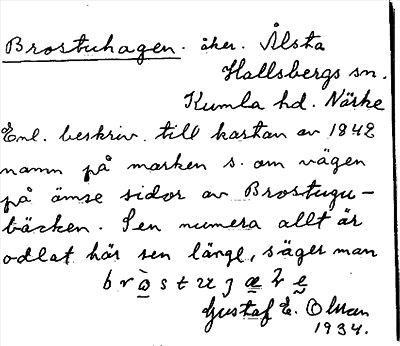 Brostuhagen. åker. Ålsta
Hallsbergs sn.
Kumla hd. Närke
Enl. beskriv. till kartan av 1842
namn på marken s. om vägen
på ömse sidor av Brostugu-
bäcken. Sen numera allt är
odlat här sen länge, säger man
Gustaf E. Olsson
1934.